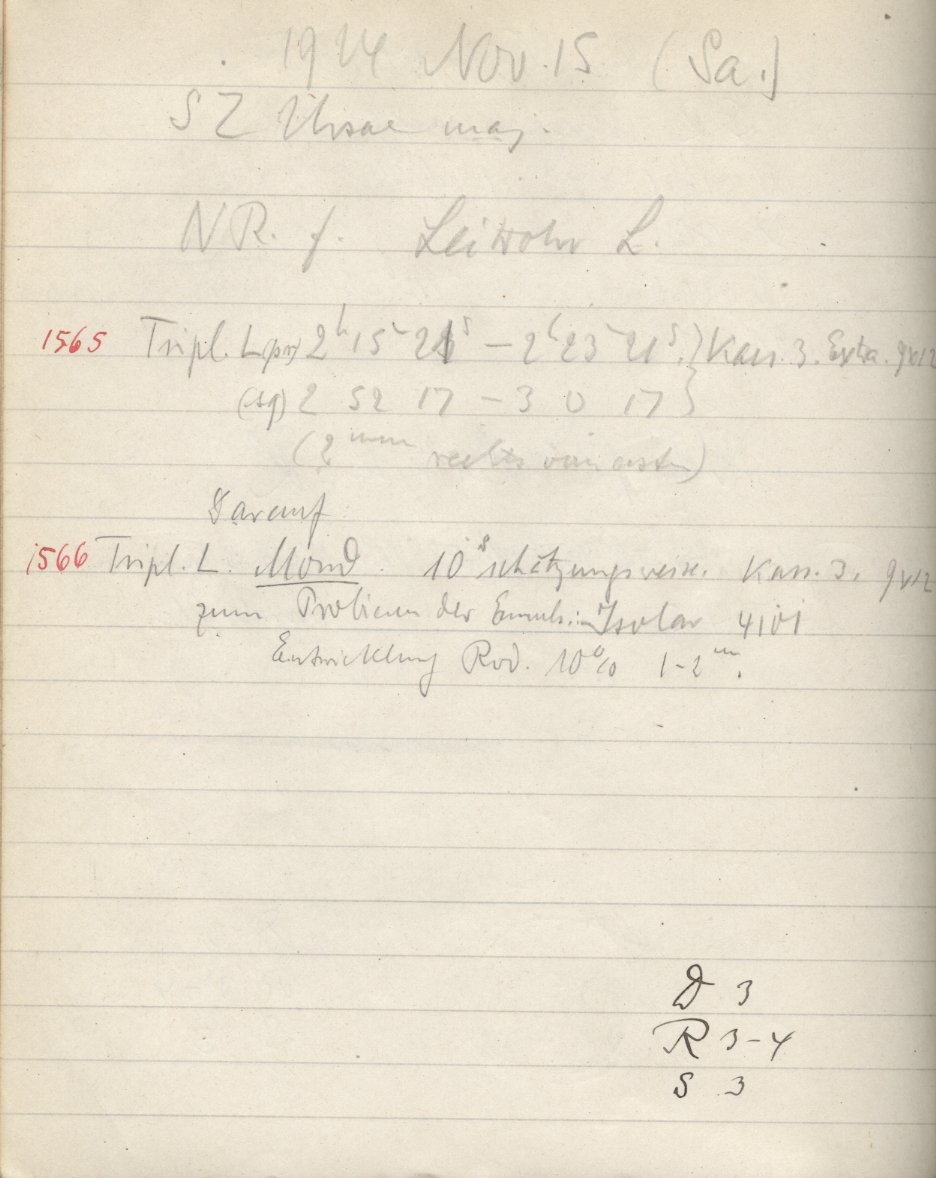 1924 Nov. 15 (Sa.)
SZ Ursae maj.
NR. f. Leitrohr L.
1565 Tripl. L. (pr) 2h 15m 21s – 2h 23m 21s.} Kass. 3. Extra. 9x12
(sq) 2 52 17 – 3 0 17}
(2mm rechts vom ersten)
Darauf
1566 Tripl. L. Mond. 10s schätzungsweise. Kass. 3. 9x12
zum Probieren der Emuls.: Isolar 4101
Entwicklung Rod. 10% 1–2m.
D 3
R 3–4
S 3